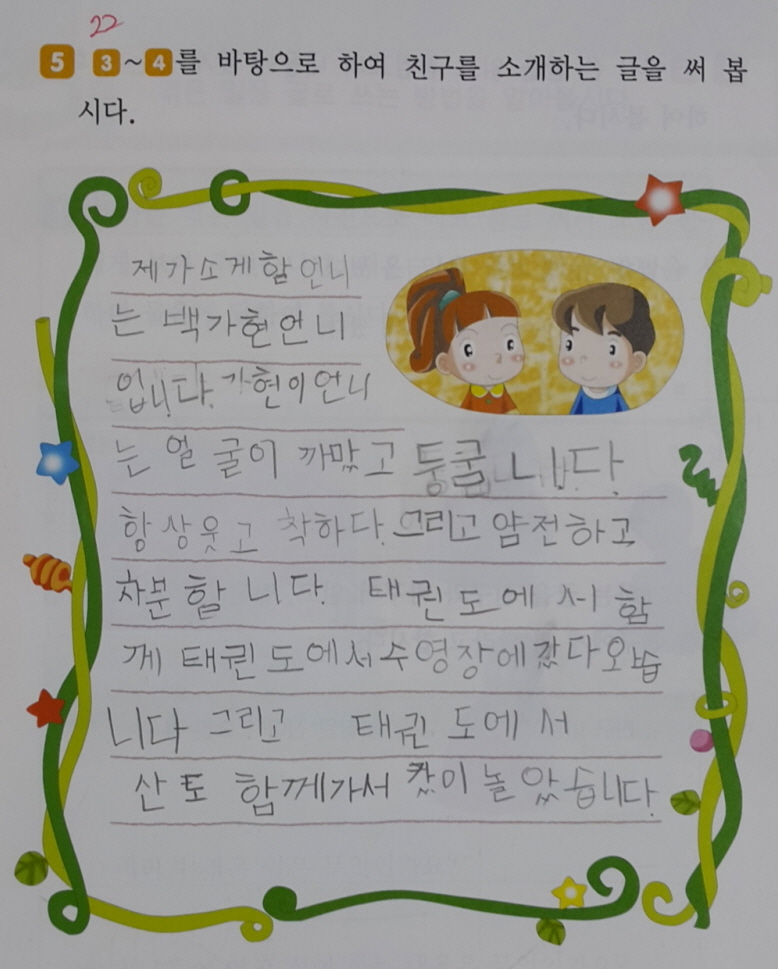 22
5 3~4를 바탕으로 하여 친구를 소개하는 글을 써 봅
시다.
제가소게할언니
는 백가현언니
입니다. 가현이언니
는 얼굴이 까맣고 둥굴니다.
항상웃고 착하다. 그리고 얌전하고
차분할니다. 태권도에서 함
게 태권도에서수영장에갔다오씁
니다 그리고 태권도에서
산토 함께가서 놀았습니다.